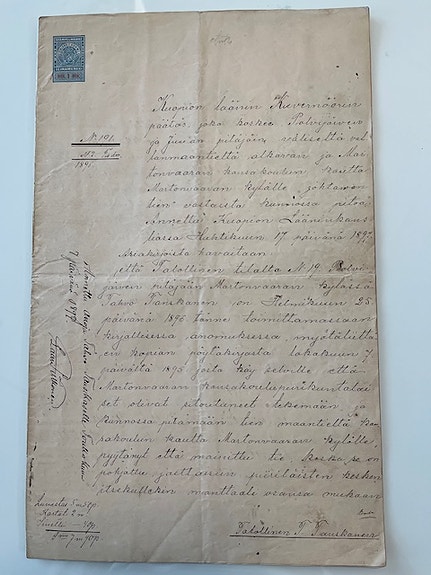 N 191.
1895.
Kuopion läänin Kuvernöörin
päätös, joka koskee Polvijärven
ja Juuan pitäjän välisestä val-
tanmaantieltä alkavan ja Mar-
tonvaaran kansakoulun kautta
Martonvaaran kylälle johtavan
tien vastaista kunnossa pitoa
Annettu Kuopion Lääninkans-
liassa Huhtikuun 17 päivänä 1897.
Asiakirjoista havaitaan:
että Talollinen tilalta N 19 Polvi-
järven pitäjän Martonvaaran kylässä
Tahvo Tanskanen on Helmikuun 25
päivänä 1896 tänne toimittamassaan
kirjallisessa anomuksessa, myötäliitta-
en kopian pöytäkirjasta lokakuun 7
päivältä 1895 josta käy selville että
Martonvaaran kansakoulupiirikuntalai-
set olivat sitoutuneet tekemään ja
kunnossa pitämään tien maantieltä kan-
sakoulun kautta Martonvaaran kylälle,
pyytänyt että mainittu tie, koska se on
pohjattu, jaettaisiin piiriläisten kesken
itsekullekin manttaali osansa mukaan
Talollinen T. Tanskanen
Lunastus 5 m 50 p.
Kartat 2 m